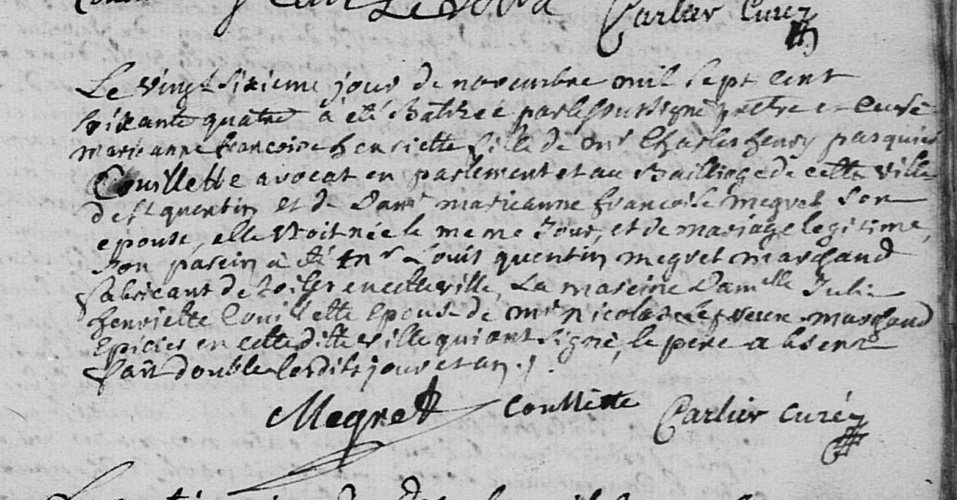 Carlier Curéz
Le vingt sixieme jour de novembre mil sept cent
soixante quatre à été Batizée par le soussigné pretre et Curé
marieanne francoise henriette fille de mr Charles henry pasquier
Couillette avocat en parlement et au Bailliage de cette ville
de st quentin et de Dame marieanne francoise megret son
epouse, elle Etoit née le meme Jour, et de mariage legitime,
son parein à été mr Louis quentin megret marchand
fabricant de toiles en cette ville, La mareine Damelle Julie
henriette Couillette Epouse de mr nicolas marchand
Epicier en cette ditte ville qui ont signé, le pere absent
fait double lesdits jour et an ./.
Megret Couillette Carlier Curéz